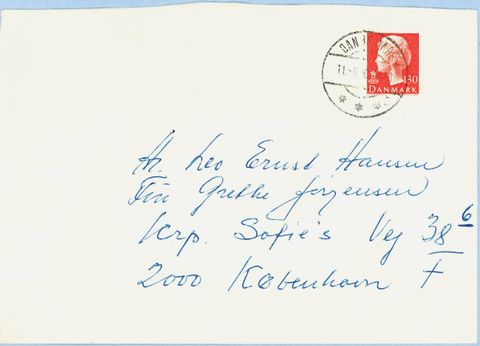 130
DANMARK
Hr. Leo Ernst Hansen
Fru Grethe Jørgensen
Krp. Sofie's Vej 38 6
2000 København F